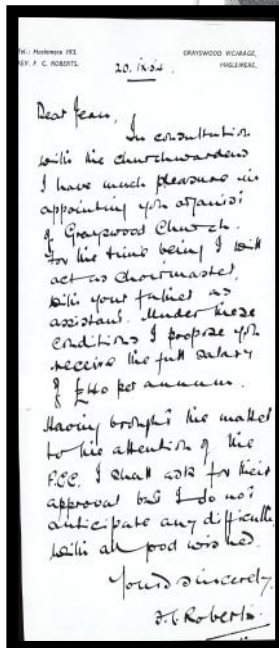 Tel.: Haslemere 193.
REV. F. G. ROBERTS.
GRAYSWOOD VICARAGE,
HASLEMERE.
20. ix. 54.
Dear Jean,
In consultation
with the churchwardens
I have much pleasure in
appointing you organist
of Grayswood Church.
For the time being I will
act as choirmaster,
with your father as
assistant. Under these
conditions I propose you
receive the full salary
of £40 per annum.
Having brought the matter
to the attention of the
P.C.C. I shall ask for their
approval but I do not
anticipate any difficulty
with all good wishes.
Yours sincerely,
F. G. Roberts.